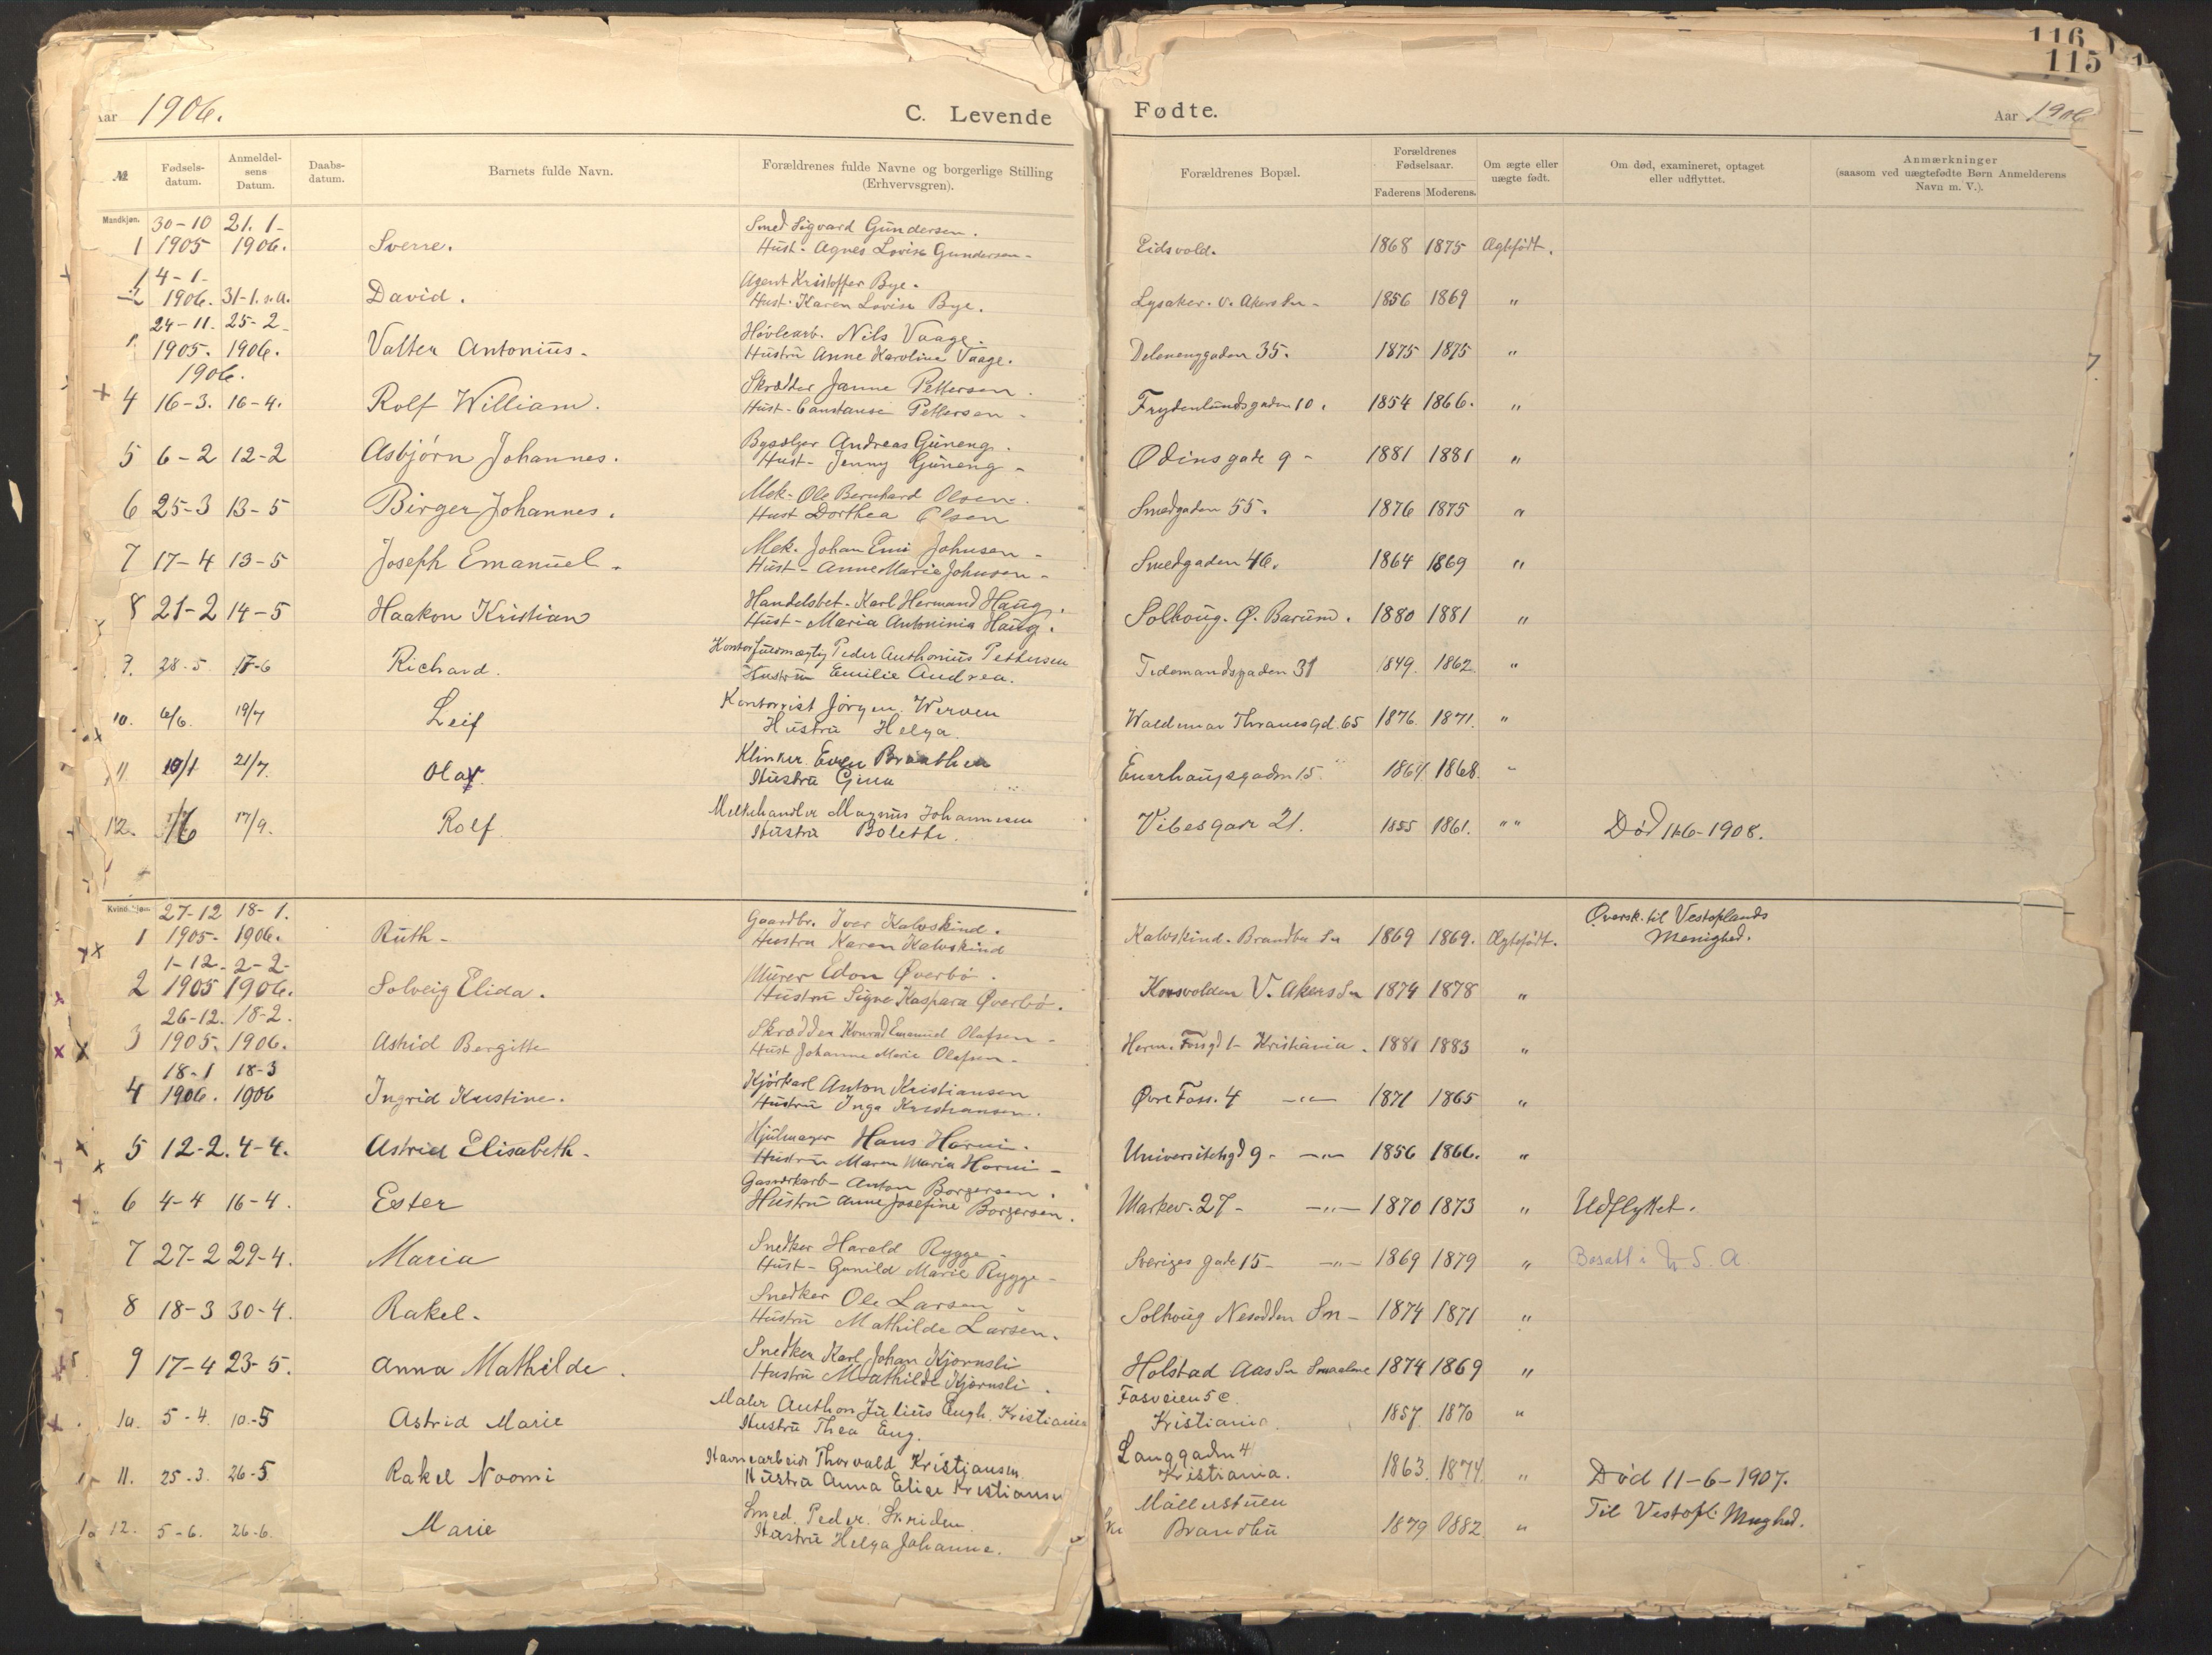 116
115
Aar 1906.
C. Levende
Fødte.
Aar 1906
№
Fødsels-
datum.
Anmeldel-
sens
Datum.
Daabs-
datum.
Barnets fulde Navn.
Forældrenes fulde Navne og borgerlige Stilling
(Erhvervsgren).
Forældrenes Bopæl.
Forældrenes
Fødselsaar.
Faderens
Moderens.
Om ægte eller
uægte født.
Om død, examineret, optaget
eller udflyttet.
Anmærkninger
(saasom ved uægtefødte Børn Anmelderens
Navn m. V.).
Mandkjøn.
30-10 21. 1- Smed Sigvard Gundersen.
1 1905 1906. Sverre. Hust- Agnes Lovise Gundersen- Eidsvold. 1868 1875 Ægtefødt.
14-1- Agent Kristoffer Bye.
2 1906. 31-1. s.a. David. Hust. Karen Lovise Bye. Lysaker. V. Akers Sn- 1856 1869 "
24-11. 25-2 Høvlearb. Nils Vaage.
1905. 1906. Valter Antonius- Hustru Anne Karoline Vaage. Delenenggaden 35. 1875 1875 "
1906. Skrædder Janne Pettersen.
4 16-3. 16-4. Rolf William. Hust- Constanse Pettersen- Frydenlundsgaden 10. 1854 1866. "
Andreas Guneng.
5 6-2 12-2 Asbjørn Johannes. Hust- Jenny Guneng- Odins gade 9- 1881 1881 "
Mek- Ole Bernhard Olsen-
6 25-3 13-5 Birger Johannes. Hust Dorthea Olsen Smedgaden 55. 1876 1875 "
Mek. Johan Johnsen-
7 17-4 13-5 Joseph Emanuel. Hust- Anne Marie Johnsen- Smedgaden 46. 1864 1869 "
Handelsbet. Karl Hermand Haug.
8 21-2 14-5 Haakon Kristian Hust- Maria Antoninia Haug. Solhoug. Ø. Bærum. 1880 1881 "
Kontorfuldmægtig Peder Anthonius Pettersen
9. 28-5 17-6 Richard. Hustru Emilie Andrea. Tidemandsgaden 31 1849. 1862 "
Kontorist Jørgen Werven
10. 6/6. 19/7 Leif Hustru Helga. Waldemar Thranesgd. 65 1876. 1871. "
Klinker Even Braathen
11. 10/1 21/7. Olaf. Hustru Gina Enerhaugsgaden 15. 1864 1868. "
Melkehandler Magnus Johannesen
12. 17/9. Rolf Hustru Bolethe. Vibesgade 21. 1855 1861. " " Død 11-6-1908.
Kvindekjøn.
27-12 18-1. Gaardbr. Iver Kalvskind. Oversk. til Vestoplands
1 1905- 1906. Ruth- Hustru Karen Kalvskind Kalvskind. Brandbu Sn 1869 1869. Ægtefødt. Menighed.
1-12- 2-2- Murer Edon Øverbø.
2 1905 1906. Solveig Elida. Hustru Signe Kaspara Øverbø. Korsvolden V. Akers Sn 1874 1878 "
26-12. 18-2. Skrædder Konrad Emanuel Olafsen-
3 1905. 1906. Astrid Bergitte Hust Johanne Marie Olafsen- Herm. Fossgd 1- Kristiania. 1881 1883 "
18-1 18-3 Kjørkarl Anton Kristiansen
4 1906. 1906 Ingrid Kristine. Hustru Inga Kristiansen. Øvre Foss. 4 -"- 1871 1865 "
Hjulmager Hans Horni-
5 12-2. 4-4. Astrid Elisabeth- Hustru Maren Maria Horni- Universitetsgd 9- -"- 1856 1866. "
Gasværkarb- Anton Borgersen.
6 4-4 16-4. Ester Hustru Anne Josefine Borgersen. Markev. 27- -"- 1870 1873 " Udflyttet.
Snedker Harald Rygge-
7 27-2 29-4. Maria Hust- Gunild Marie Rygge- Sveriges gade 15- -"- 1869 1879 " Bosatt i U. S. A.
Snedker Ole Larsen-
8 18-3 30-4. Rakel- Hustru Mathilde Larsen. Solhoug Nesodden Sn- 1874 1871 "
Snedker Karl Johan Kjørnsli
9 17-4 23-5. Anna Mathilde. Hustru Mathilde Kjørnsli. Holstad Aas Sn Smaalene 1874 1869 "
Maler Anthon Julius Engh. Kristiania Fosveien 5 c
10. 5-4. 10-5 Astrid Marie Hustru Thea Eng. Kristiania. 1857 1870 "
Havnearbeider Thorvald Kristjansen. Langgaden 4
11. 25-3. 26-5 Rakel Noomi Hustru Anna Elise Kristiansen Kristiania. 1863 1874. " Død 11-6-1907.
Smed. Peder Skriden Møllerstuen Til Vestopl. Mnghed.
12. 5-6. 26-6. Marie Hustru Helga Johanne. Brandbu 1879 1882 "